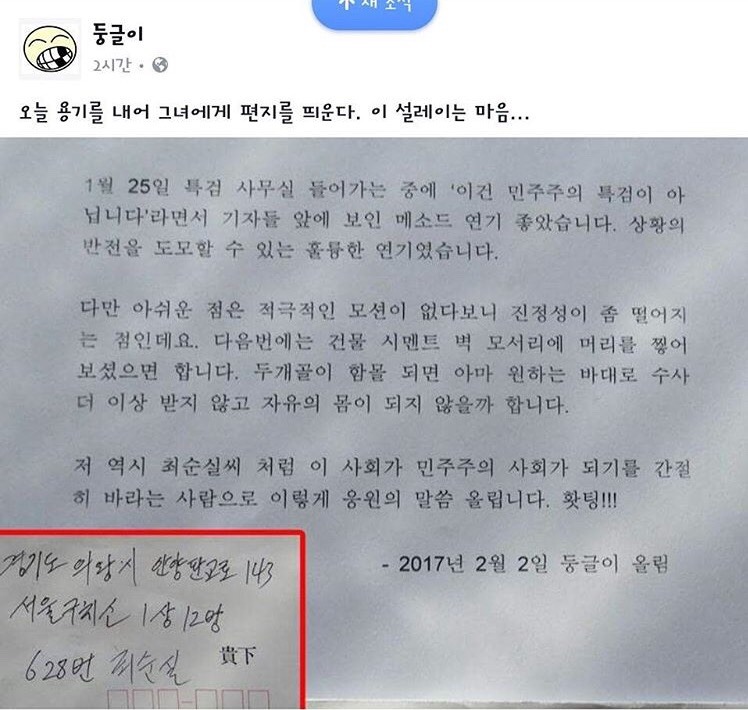 새 소식
둥글이
2시간
오늘 용기를 내어 그녀에게 편지를 띄운다. 이 설레이는 마음...
1월 25일 특검 사무실 들어가는 중에 '이건 민주주의 특검이 아
닙니다'라면서 기자들 앞에 보인 메소드 연기 좋았습니다. 상황의
반전을 도모할 수 있는 훌륭한 연기였습니다.
다만 아쉬운 점은 적극적인 모션이 없다보니 진정성이 좀 떨어지
는 점인데요. 다음번에는 건물 시멘트 벽 모서리에 머리를 찧어
보셨으면 합니다. 두개골이 함몰 되면 아마 원하는 바대로 수사
더 이상 받지 않고 자유의 몸이 되지 않을까 합니다.
저 역시 최순실씨 처럼 이 사회가 민주주의 사회가 되기를 간절
히 바라는 사람으로 이렇게 응원의 말씀 올립니다. 홧팅!!!
- 2017년 2월 2일 둥글이 올림
경기도 의왕시 안양판교로 143
서울구치소 1상 12방
628번 최순실 貴下